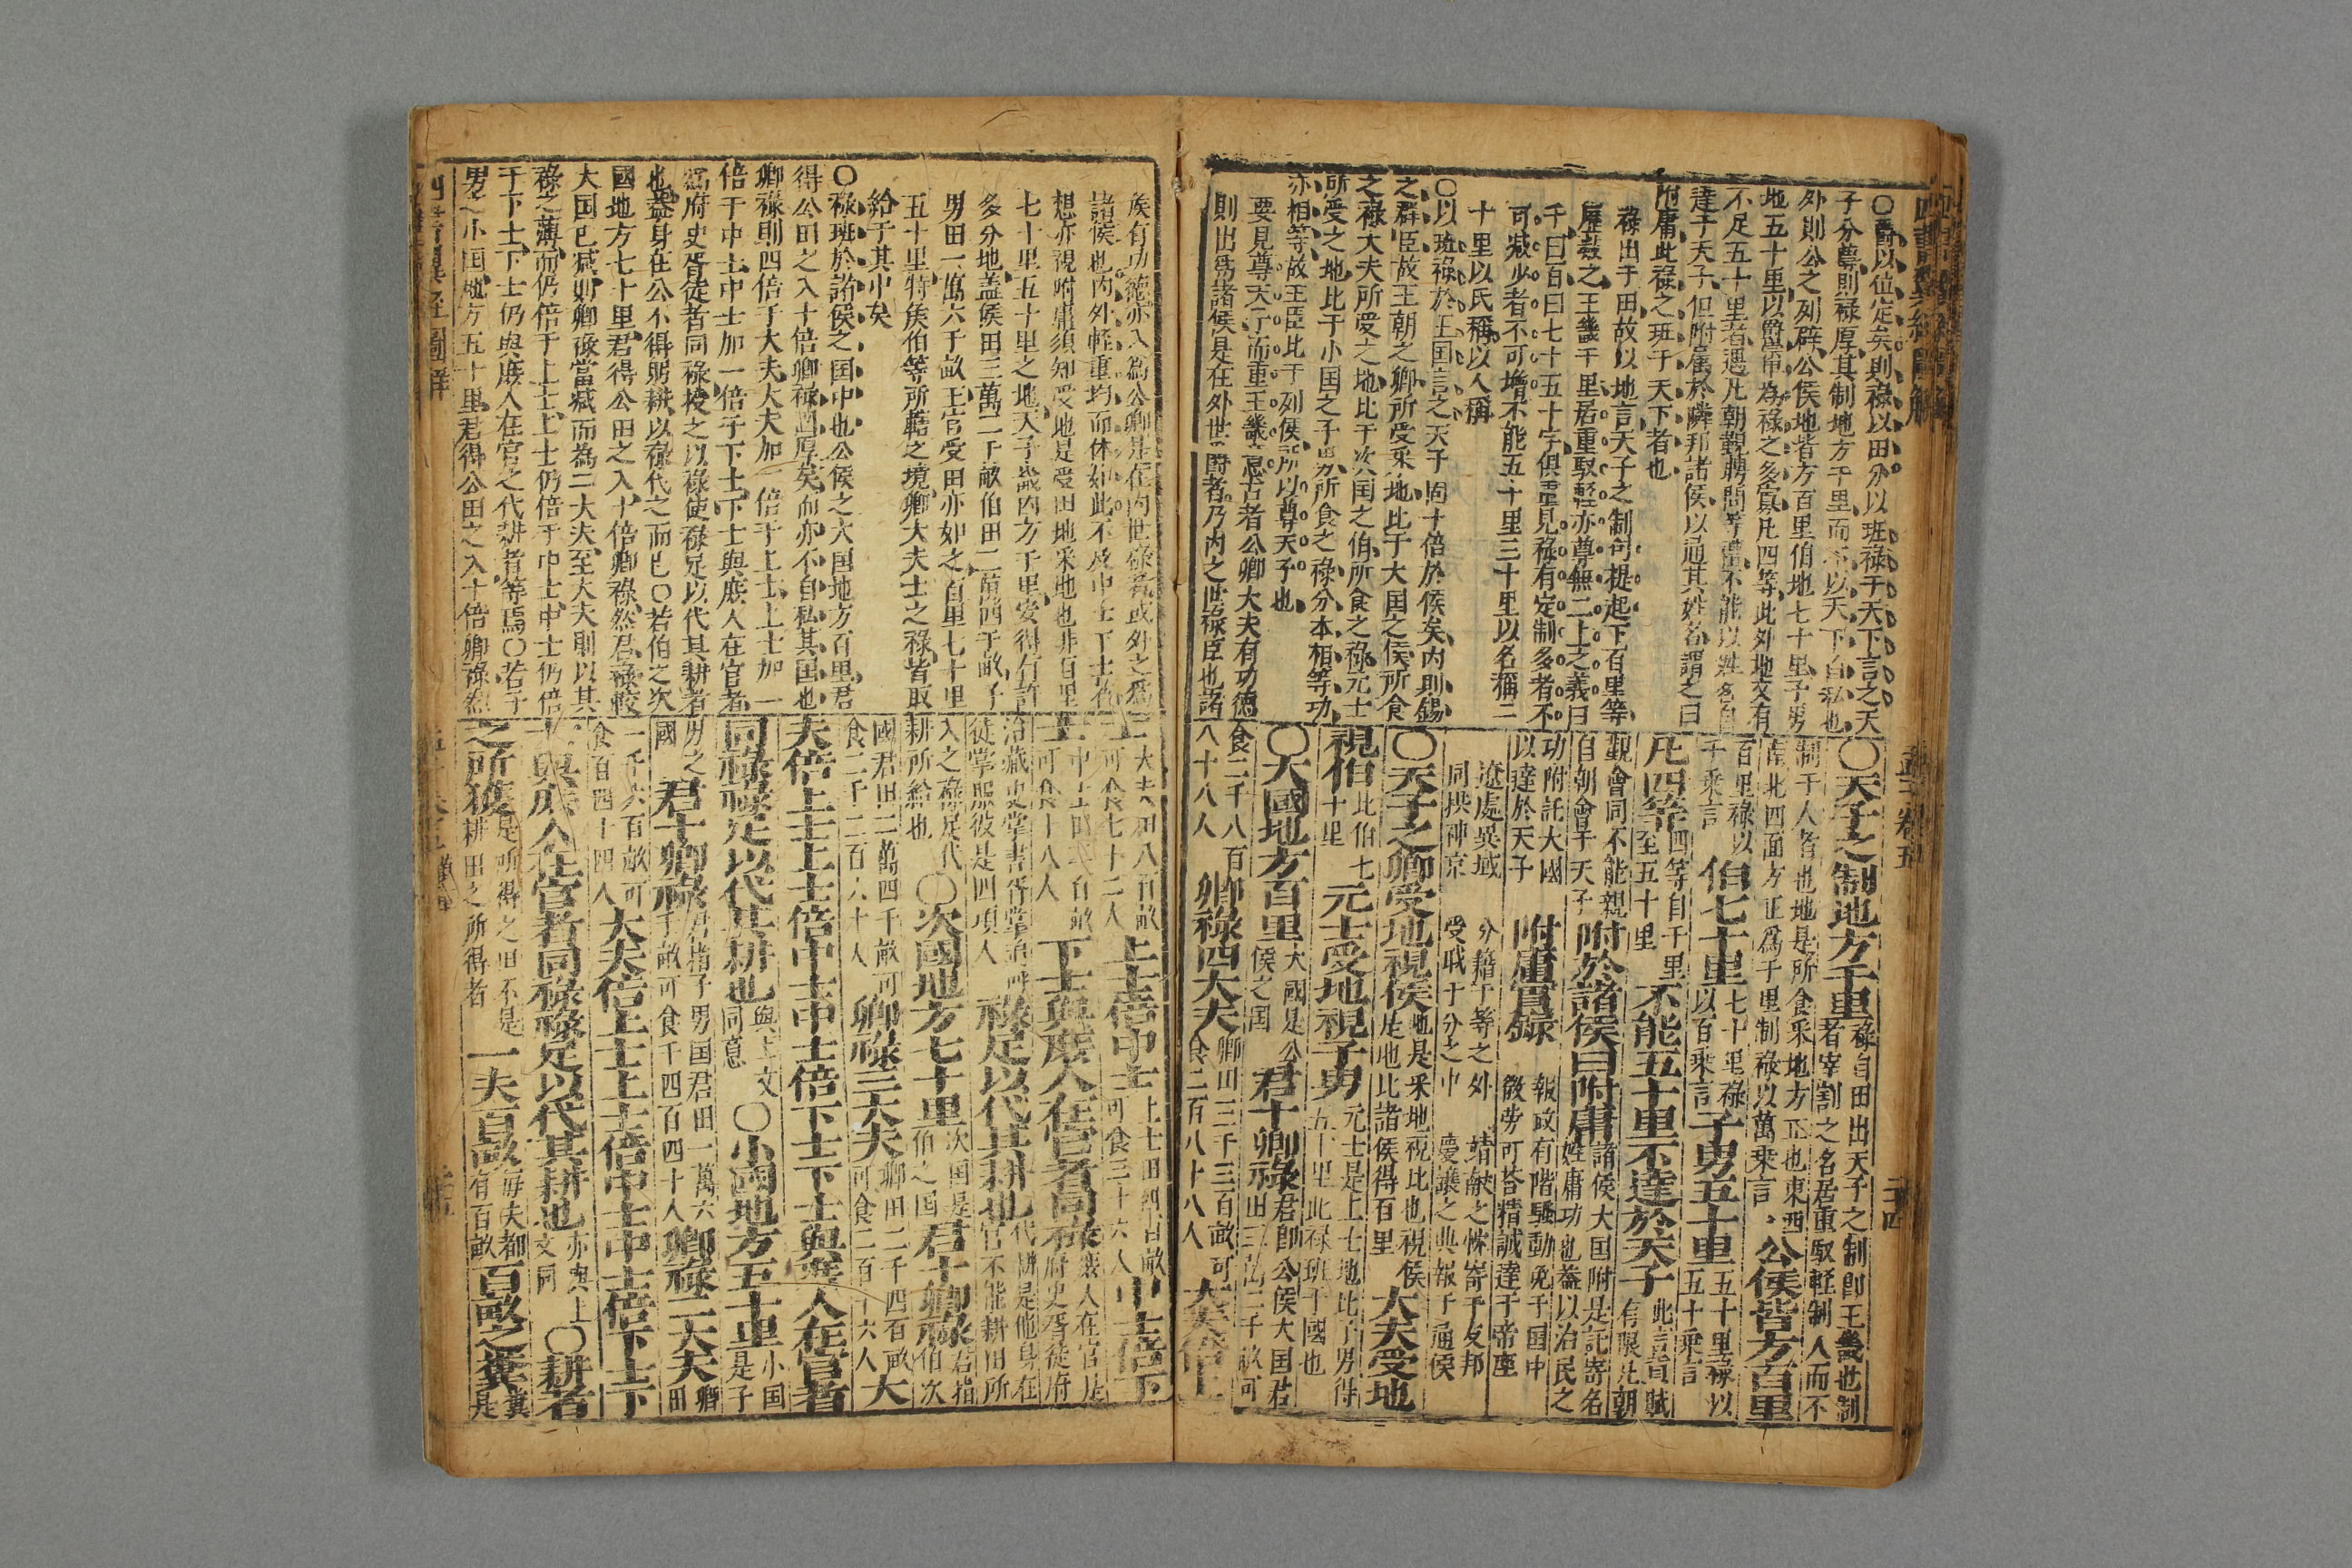 〇爵以位定矣則祿以田分以班祿于天下言之天
子分尊則祿厚其制地方千里而不以天下自私也
外則公之列辟公侯地皆方百里伯地七十里子男
地五十里以爵單為祿之多寡凡四等此外地又有
不足五十里者遇凡朝覲聘問等禮不能以姓名自
達于天子但附屬於隣邦諸侯以通其姓名謂之曰
附庸此祿之班于天下者也
祿出于田故以地言天子之制句提起下百里等
歷數之王畿千里居重馭軽亦尊無二上之義曰
千曰百曰七十五十字俱重見祿有定制多者不
可减少者不可增不能五十里三十里以名稱二
十里以氏稱以人稱
〇以班祿於王国言之天子固十倍於侯矣内則錫
之群臣故王朝之卿所受采地比于大国之侯所食
之祿大夫所受之地比于次国之伯所食之祿元士
所受之地比于小国之子男所食之祿分本相等功
亦相等故王臣比于列侯所以尊天子也
要見尊天子而重王畿意古者公卿大夫有功德
則出爲諸侯是在外世爵者乃内之世祿臣也諸
〇天子之制地方千里祿自田出天子之制即王畿也制
者宰割之名居重馭軽制人而不
制于人者也地是所食采地方正也東西
南北四面方正爲千里制祿以萬乘言
公侯皆方百里
百里祿以
千乘言
伯七十里七十里祿
以百乘言
子男五十里五十里祿以
五十乘言
凡四等四等自千里
至五十里
不能五十里不達於天子此言貢賦
有限凡朝
覲會同不能親
自朝會于天子
附於諸侯曰附庸諸侯大国附是託寄名
姓庸功也盖以治民之
功附託大國
以達於天子
附庸實録
報政有階騷動免于国中
微勞可荅精誠達于帝座
遼處異域
同拱神京
分籍于等之外
受戢于分之中
靖献之悰寄于友邦
慶讓之典報于通侯
〇天子之卿受地視侯地是采地視比也視侯
是地比諸侯得百里
大夫受地
視伯比伯七
十里
元士受地視子男元士是上士地比子男得
五十里此祿班于國也
〇大國地方百里大國是公
侯之国
君十卿祿君即公侯大国君
田三萬二千畝可
食二千八百
八十八人
卿祿四大夫卿田三千三百畝可
食二百八十八人
大夫倍上
侯有功德亦入為公卿是在内世祿者或外之爲
諸侯也内外軽重均而休如此不及中士下士者
想亦視附庸須知受地是受田地采地也非百里
七十里五十里之地天子畿内方千里安得有許
多分地盖侯田三萬二千畝伯田二萬四千畝子
男田一萬六千畝王官受田亦如之百里七十里
五十里特侯伯等所轄之境卿大夫士之祿皆取
給于其中矣
〇祿班於諸侯之国中也公侯之大国地方百里君
得公田之入十倍卿祿固厚矣而亦不自私其国也
卿祿則四倍于大夫大夫加一倍于上士上士加一
倍于中士中士加一倍于下士下士與庶人在官者
爲府史胥徒者同祿授之以祿使祿足以代其耕者
也盖身在公不得躬耕以祿代之而已〇若伯之次
國地方七十里君得公田之入十倍卿祿然君祿較
大国已减如卿祿當减而為三大夫至大夫則以其
祿之薄而仍倍于上士上士仍倍于中士中士仍倍
于下士下士仍與庶人在官之代耕者等焉〇若子
男之小国地方五十里君得公田之入十倍卿祿然
士大夫田八百畝
可食七十二人
上士倍中士上士田四百畝
可食三十六人
中士倍下
士中士田二百畝
可食十八人
下士與庶人在官者同祿庶人在官是
府史胥徒府
治藏史掌書胥掌治叫
徒掌服役是四項人
祿足以代其耕也代耕是他身在
官不能耕田所
入之祿足代
耕所給也
〇次國地方七十里次国是
伯之国
君十卿祿君指
伯次
國君田二萬四千畝可
食二千二百六十人
卿祿三大夫卿田二千四百畝
可食二百十六人
大
夫倍上士上士倍中士中士倍下士下士與庶人在官者
同祿祿足以代其耕也與上文
同意
〇小國地方五十里小国
是子
男之
國
君十卿祿君指子男国君田一萬六
千畝可食千四百四十人
卿祿二大夫卿
田
一千六百畝可
食百四十四人
大夫倍上士上士倍中士中士倍下士下
士與庶人在官者同祿祿足以代其耕也亦與上
文同
〇耕者
之所獲是所得之田不是
耕田之所得者
一夫百畝每夫都
有百畝
百畝之糞糞
是